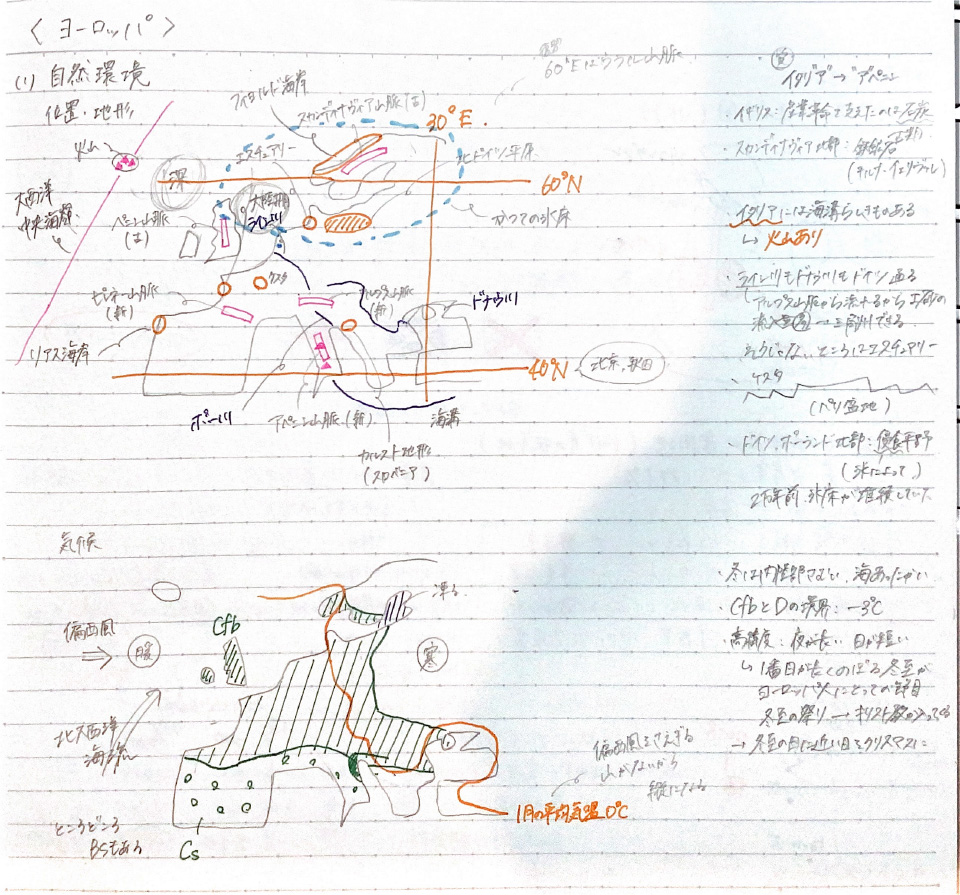 〈ヨーロッパ〉
(1) 自然環境
位置・地形
火山
大西洋
中央海嶺
フィヨルド海岸
スカンディナヴィア山脈(古)
エスチュアリー
30°E.
60°Eはウラル山脈
北ドイツ平原
60°N
かつての氷床
ペニン山脈
(古)
ピレネー山脈
(新)
リアス海岸
ケスタ
アルプス山脈
(新)
ドナウ川
40°N
北京、秋田
ポー川
アペニン山脈(新)
海溝
カルスト地形
(スロベニア)
イタリア→アペニン
・イギリス：産業革命を支えたのは石炭
・スカンディナヴィア北部：鉄鉱石
(キルナ・イェリヴァレ)
・イタリアには海溝らしきものある
↳火山あり
・ライン川もドナウ川もドイツ通る
アルプス山脈から流れるから土砂の
→三角州できる
そうじゃないところにはエスチュアリー
・ケスタ
(パリ盆地)
・ドイツ、ポーランド北部：侵食平野
(氷によって)
2万年前、氷床が堆積していた
気候
偏西風
暖
Cfb
凍る
寒
北大西洋
海流
ところどころ
BSもある
Cs
偏西風をさえぎる
山がないから
縦になる
1月の平均気温0℃
・冬は内陸部さむい、海あったかい
・CfbとDの境界：-3℃
・高緯度：夜が長い 日が短い
↳1番日が長くのぼる冬至が
ヨーロッパ人にとっての節目
冬至の祭り→キリスト教が入ってくる
→冬至の日に近い日をクリスマスに